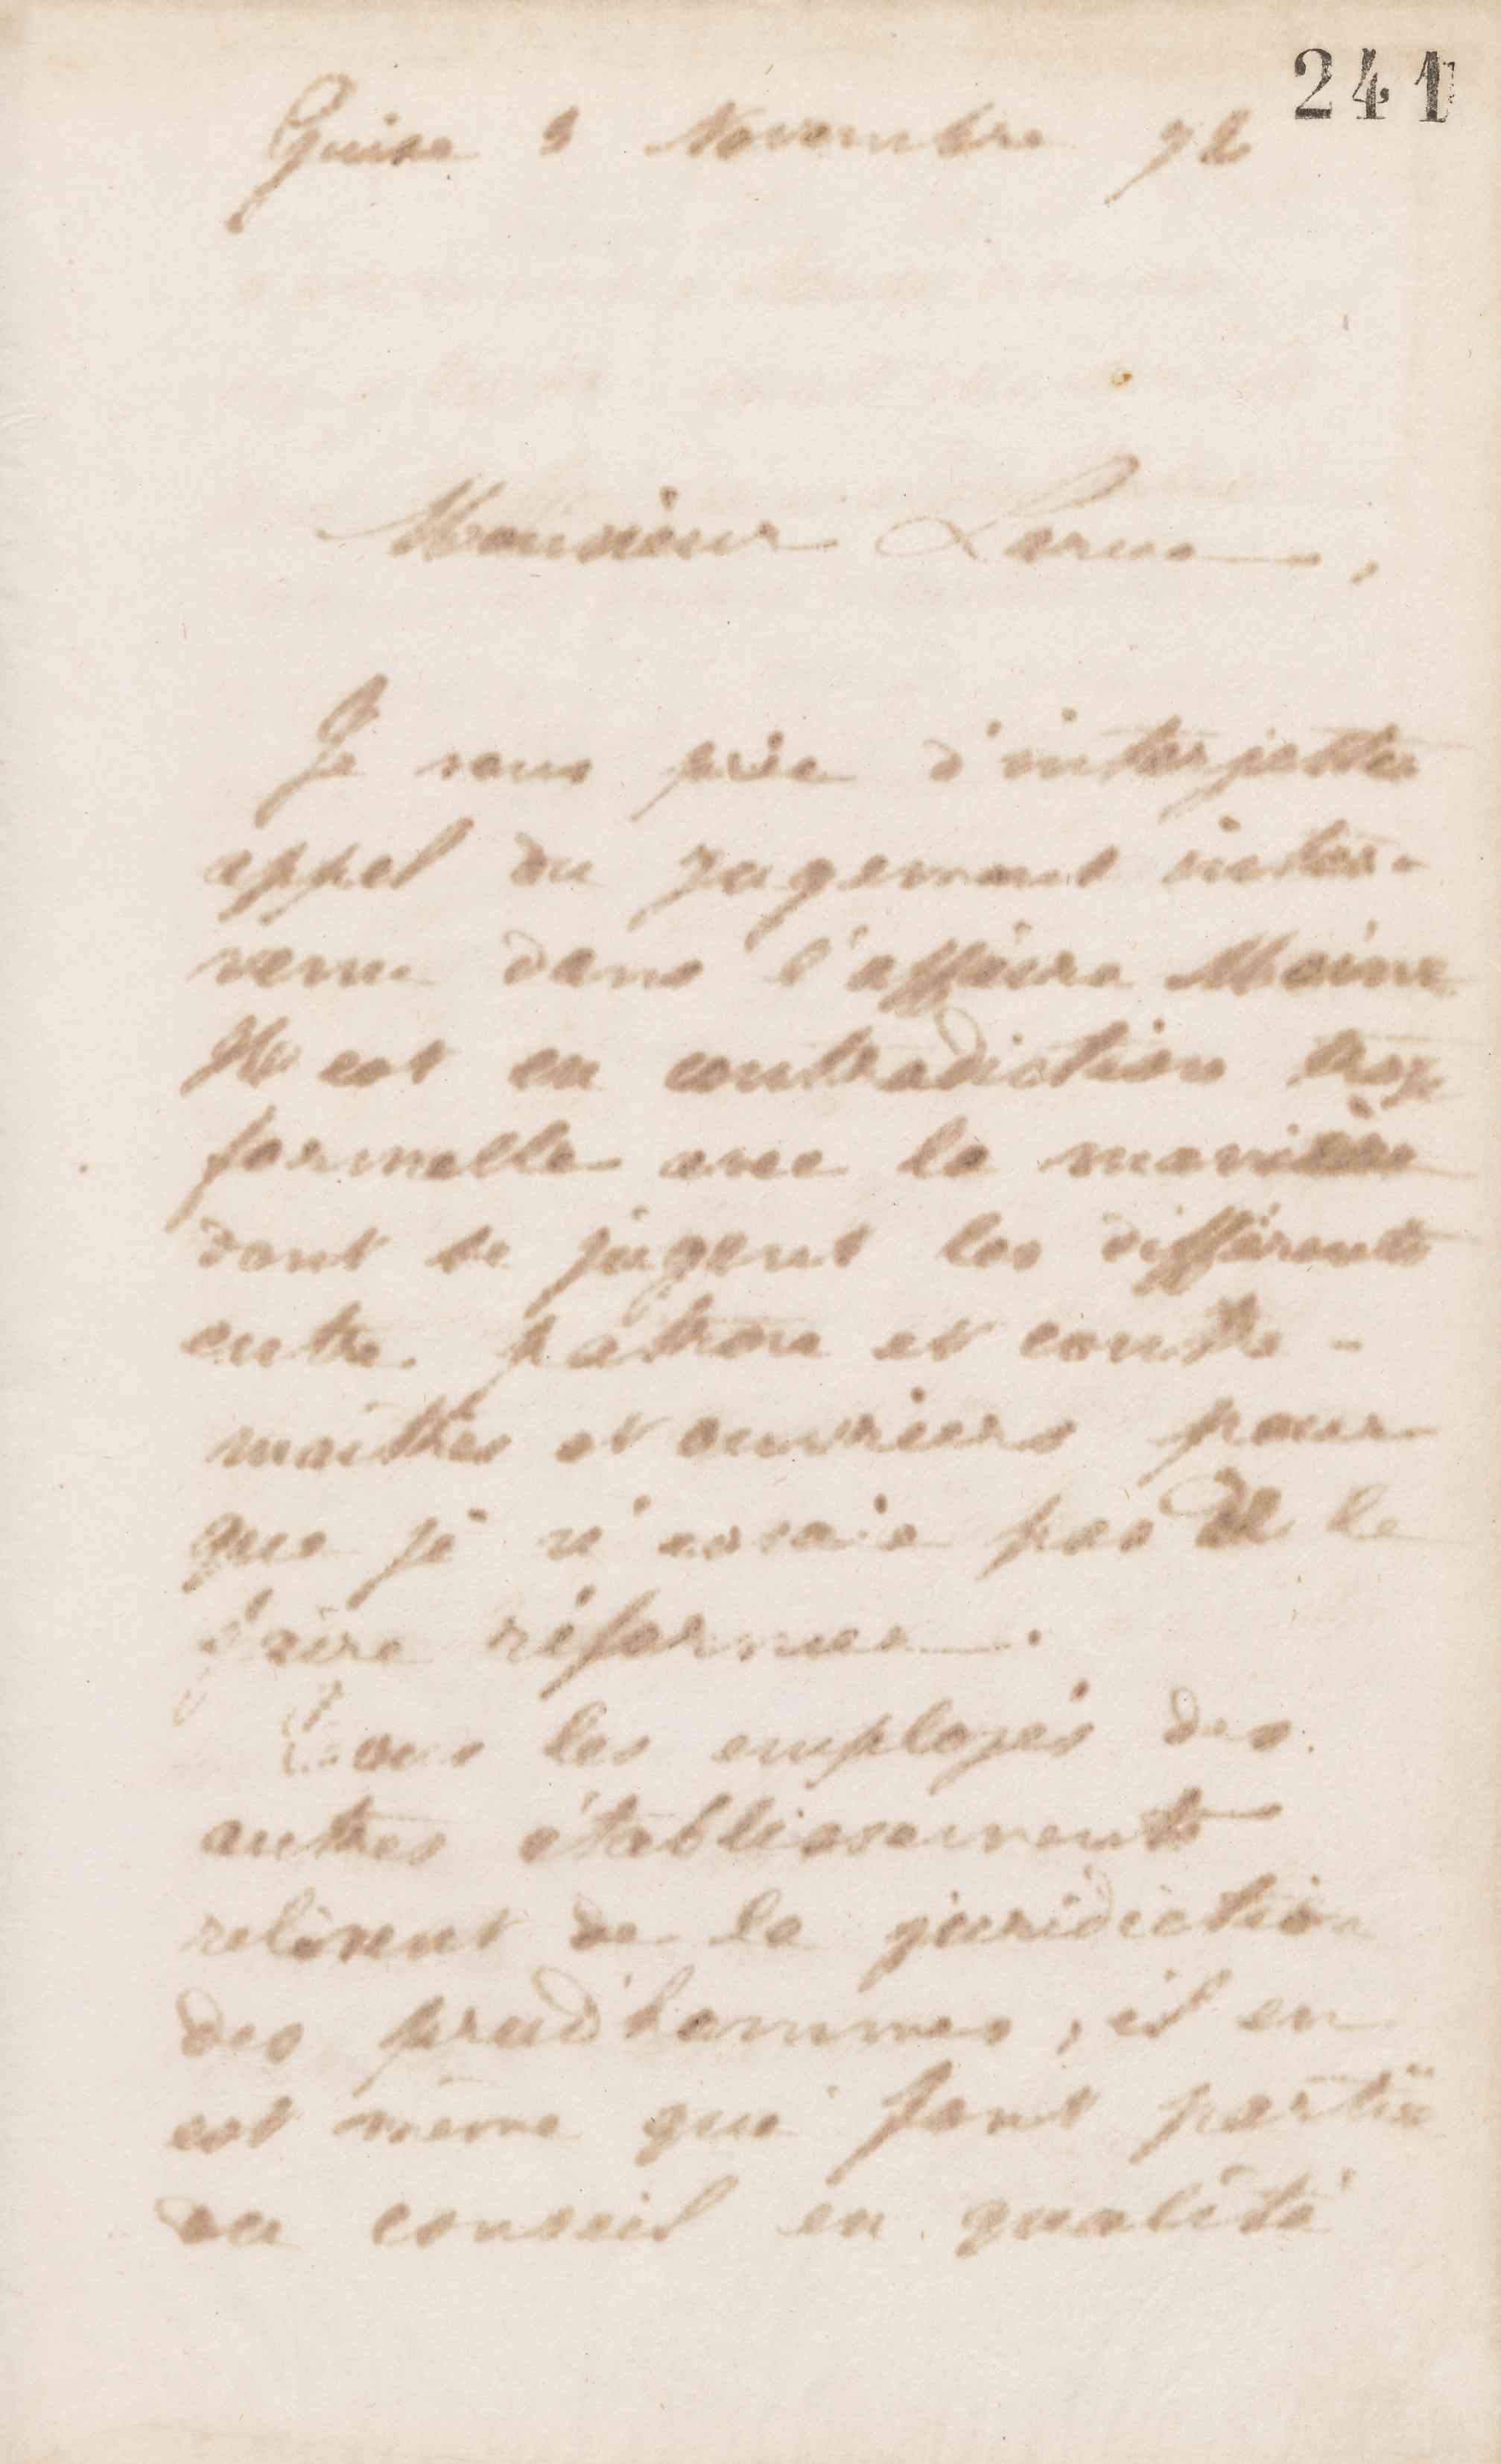 241
Guise 9 Novembre 72
Monsieur Larue,
Je vous prie d'interjetter
appel du jugement inter-
venu dans l'affaire Moine
Il est en contradiction trop
formelle avec la manière
dont se jugent les différents
entre patron et contre-
maîtres et ouvriers pour
que je n'essaie pas de le
faire réformer.
Tous les employés des
autres établissements
relèvent de la juridiction
des prud'hommes, il en
est même qui font partie
du conseil en qualité